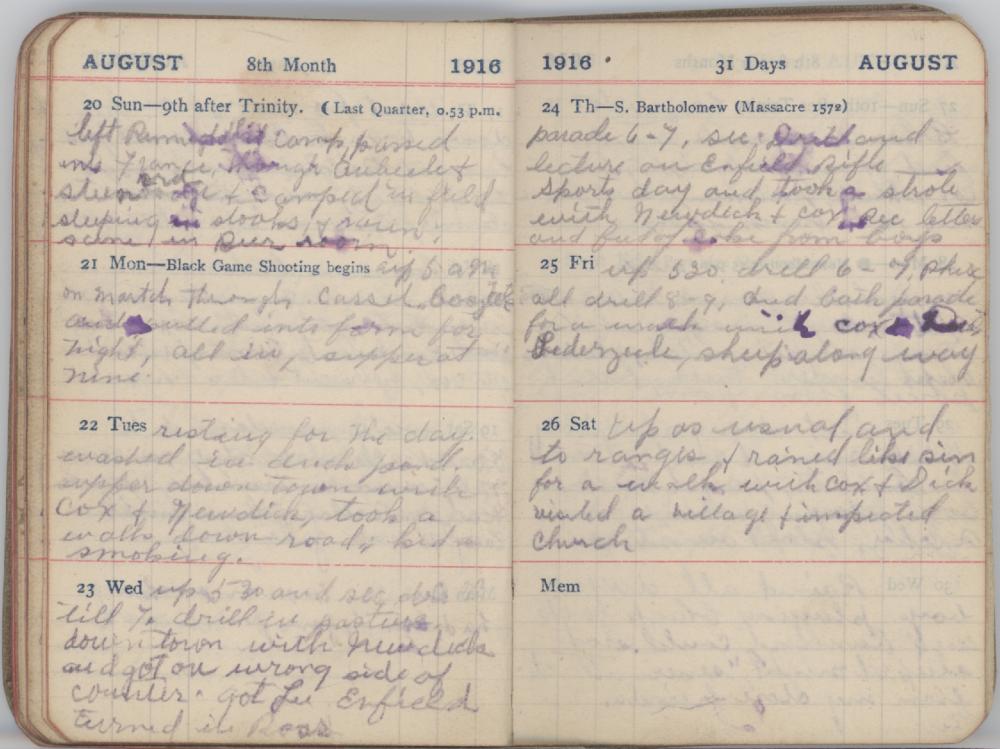 AUGUST 8th Month 1916
20 Sun—9th after Trinity. (Last Quarter, 0.53 p.m.
left camp, passed
into France, through &
& camped in field
sleeping in stooks, & rain.
scene in Beer room
21 Mon—Black Game Shooting begins up 5 a.m.
on march through Cassel,
and pulled into farm for
night, all in, supper at
nine.
22 Tues resting for the day.
washed in duck pond.
supper down town with
Cox & Newdick, took a
walk down road,
smoking.
23 Wed up 5 30 and sec drill
till 7, drill in pasture
down town with Newdick
and got on wrong side of
counter. got Lee Enfield
turned in Ross
1916 31 Days AUGUST
24 Th—S. Bartholomew (Massacre 1572)
parade 6-7, sec Drill and
lecture on Enfield Rifle
Sports day and took a strole
with Newdick & cox, rec letters
and from boys
25 Fri up 530 drill 6-7, phisc
all drill 8-9, and bath parade
for a walk with cox &
sheep along way
26 Sat up as usual and
to ranges, & rained like sin
for a walk with cox & Dick
visited a village & inspected
church
Mem